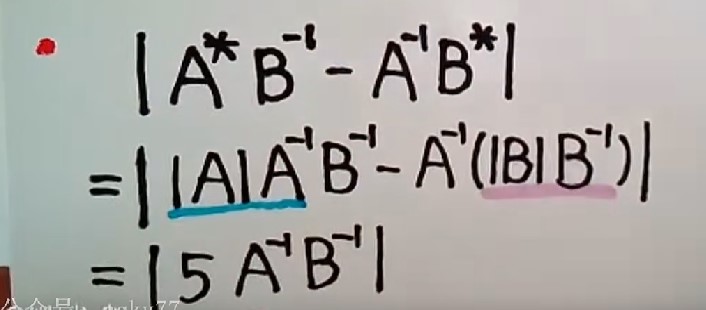 |A*B⁻¹ - A⁻¹B*|
= ||A|A⁻¹B⁻¹ - A⁻¹(|B|B⁻¹)|
= |5A⁻¹B⁻¹|
公众号: